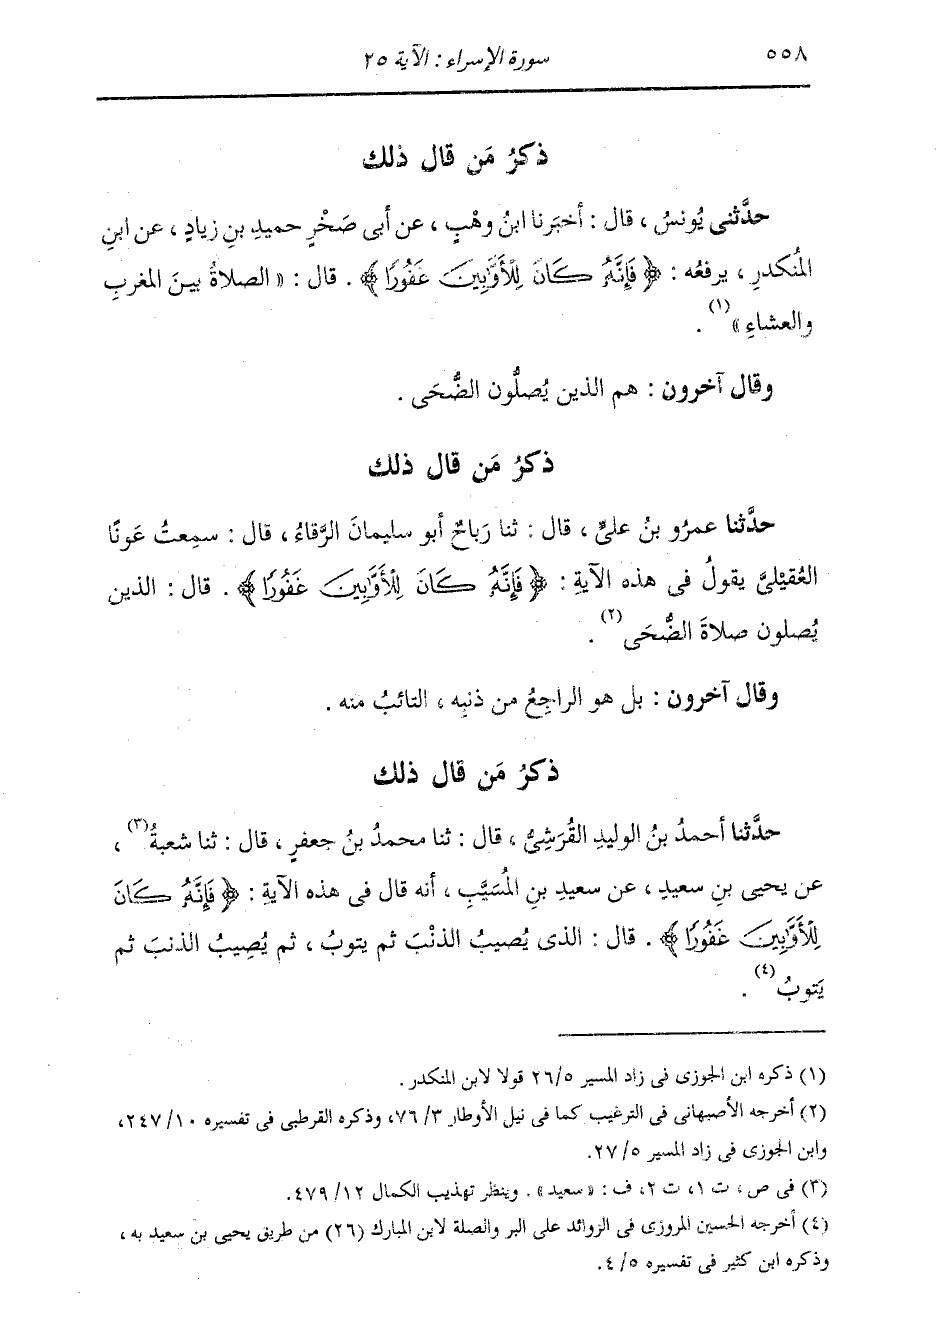 ٥٥٨ سورة الإسراء : الآية ٢٥
ذكرُ مَن قال ذلك
حدَّثنى يُونسُ ، قال : أخبَرنا ابنُ وهْبٍ ، عن أبى صَخْرٍ حميدِ بنِ زيادٍ ، عن ابنِ
المُنكدرِ ، يرفعُه : ﴿ فَإِنَّهُۥ كَانَ لِلْأَوَّٰبِينَ غَفُورًا ﴾ . قال : « الصلاةُ بينَ المغربِ
والعشاءِ » (١) .
وقال آخرون : هم الذين يُصلُّون الضُّحَى .
ذكرُ مَن قال ذلك
حدَّثنا عمرُو بنُ علىٍّ ، قال : ثنا رَباحٌ أبو سليمانَ الرَّقاءُ ، قال : سمِعتُ عَونًا
العُقيْلىَّ يقولُ فى هذه الآيةِ : ﴿ فَإِنَّهُۥ كَانَ لِلْأَوَّٰبِينَ غَفُورًا ﴾ . قال : الذين
يُصلون صلاةَ الضُّحَى (٢) .
وقال آخرون : بل هو الراجِعُ من ذنبِه ، التائبُ منه .
ذكرُ مَن قال ذلك
حدَّثنا أحمدُ بنُ الوليدِ القُرَشِىُّ ، قال : ثنا محمدُ بنُ جعفرٍ ، قال : ثنا شعبةُ (٣) ،
عن يحيى بنِ سعيدٍ ، عن سعيدِ بنِ المُسَيَّبِ ، أنه قال فى هذه الآيةِ : ﴿ فَإِنَّهُۥ كَانَ
لِلْأَوَّٰبِينَ غَفُورًا ﴾ . قال : الذى يُصيبُ الذنْبَ ثم يتوبُ ، ثم يُصِيبُ الذنبَ ثم
يَتوبُ (٤) .
(١) ذكره ابن الجوزى فى زاد المسير ٢٦/٥ قولا لابن المنكدر .
(٢) أخرجه الأصبهانى فى الترغيب كما فى نيل الأوطار ٧٦/٣، وذكره القرطبى فى تفسيره ٢٤٧/١٠،
وابن الجوزى فى زاد المسير ٢٧/٥.
(٣) فى ص ، ت ١، ت ٢، ف : « سعيد » . وينظر تهذيب الكمال ٤٧٩/١٢.
(٤) أخرجه الحسين المروزى فى الزوائد على البر والصلة لابن المبارك (٢٦) من طريق يحيى بن سعيد به ،
وذكره ابن كثير فى تفسيره ٤/٥.